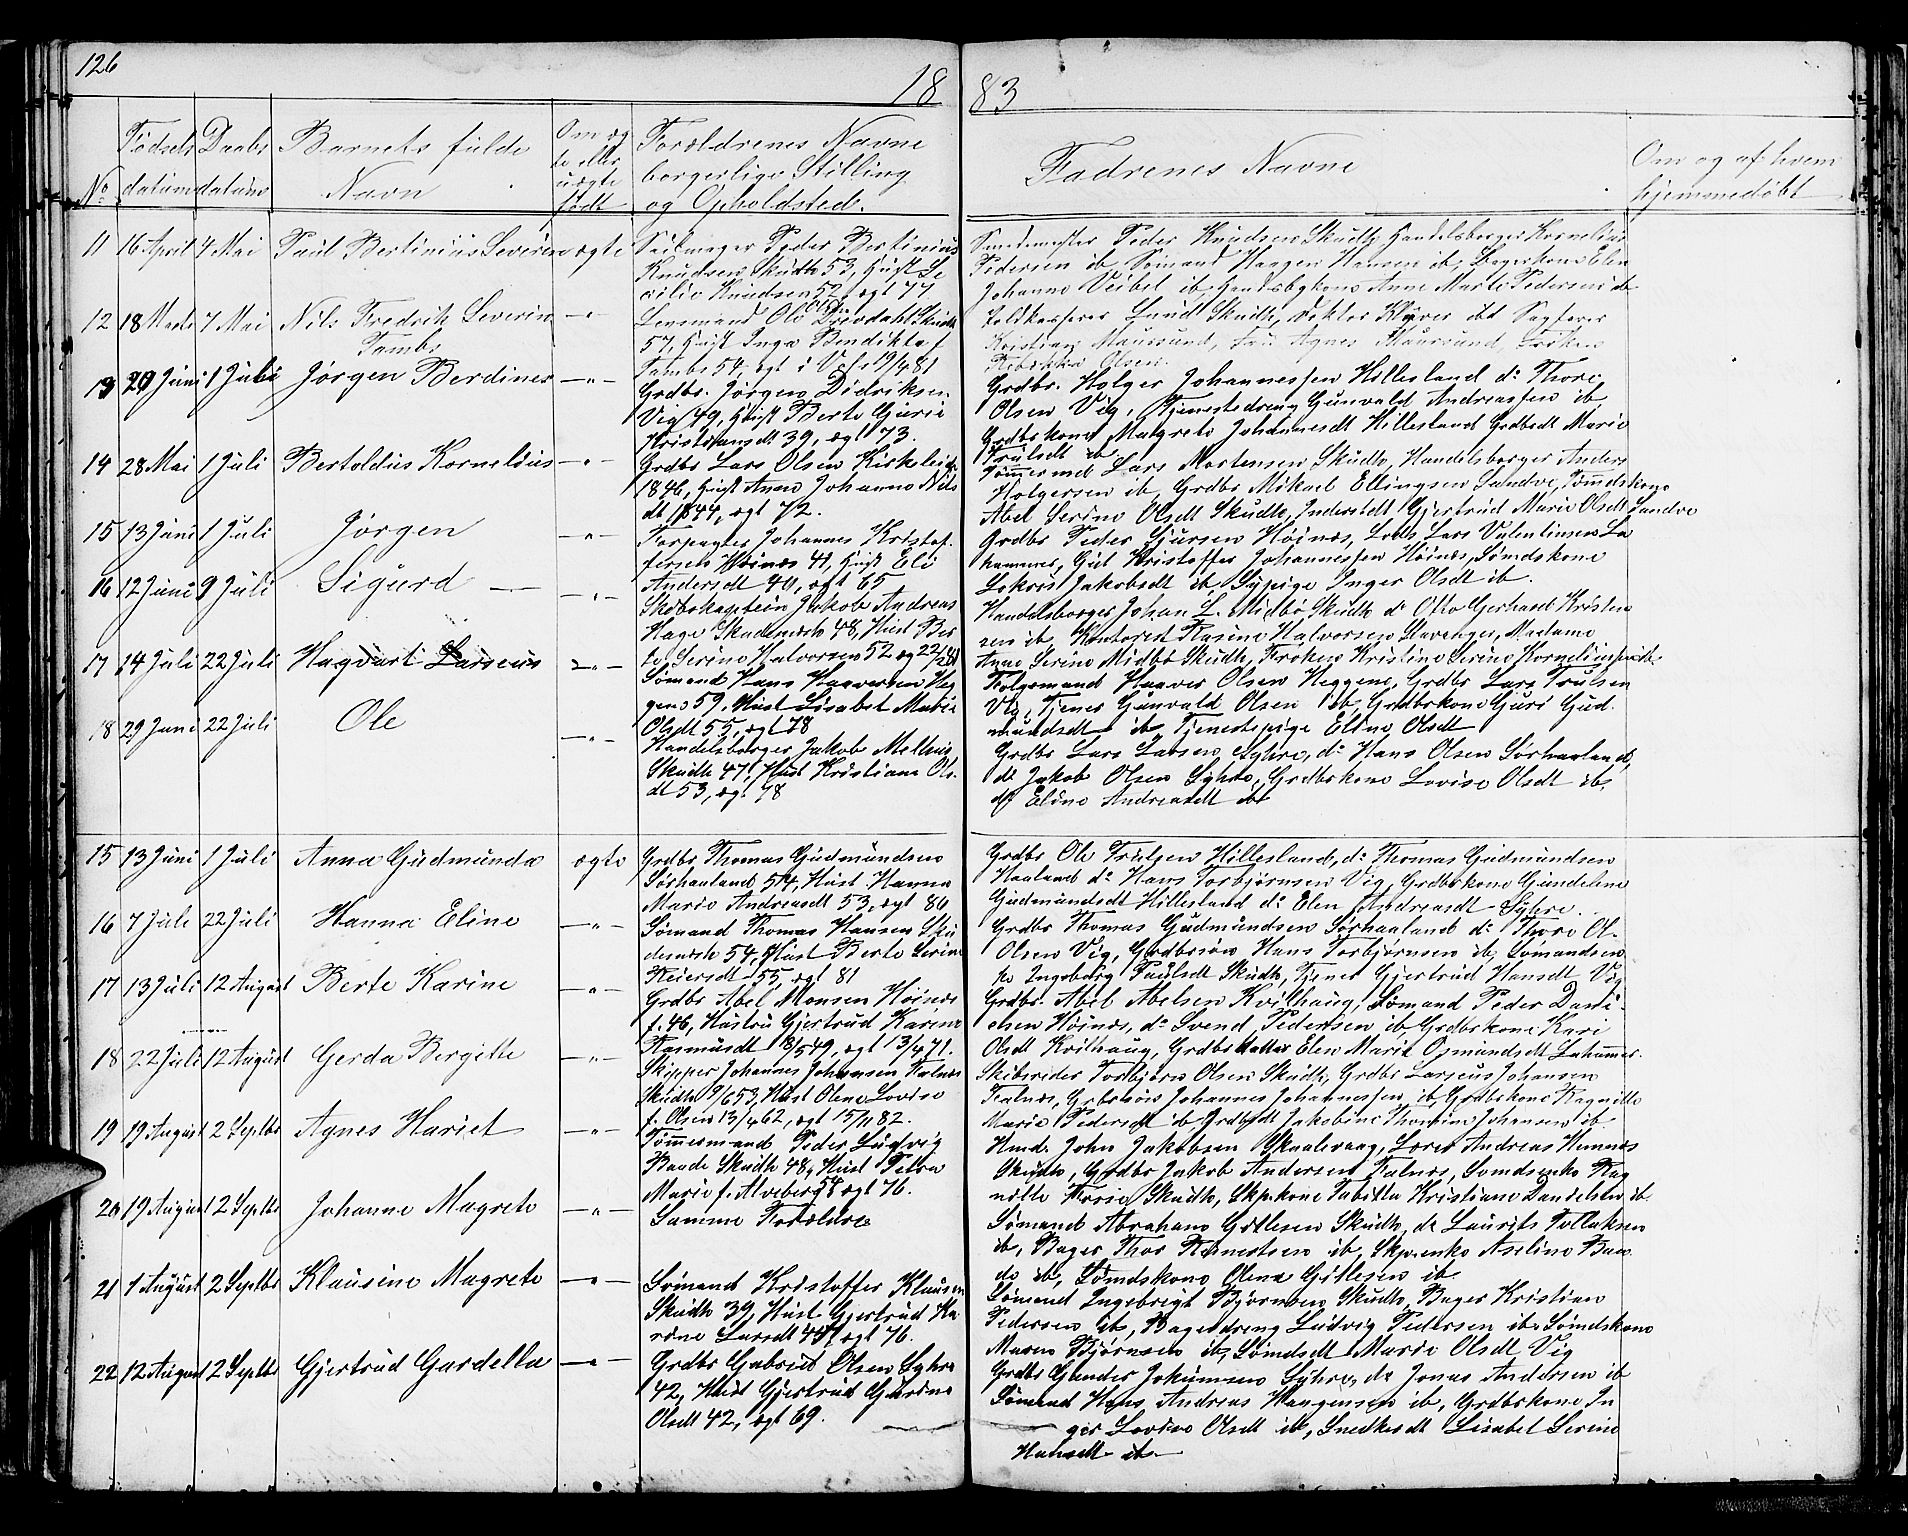 126
18 83
No
Fødsels datum
Daabs datum
Barnets fulde Navn
Om æg te eller uægte født
Forældrenes Navne borgerlige Stilling og Opholdsted.
Fadrenes Navne
Om og af hvem hjemmedøbt
11 16 April 7 Mai Paul Bertinius Severin ægte
Seilmager Peder Bertinius
Knudsen Skudh 53, Hust Ce
cilie Knudsen 52, ægt 77
Smedemester Peder Knudsen Skudh, Handelsborger Kornelius
Pedersen ib, Sømand Haagen Hansen ib, Bagerkone Elen
Johanne Veibel ib, Handsbgkone Anne Marte Pedersen ib
12 18 Marts 7 Mai Nils Fredrik Severin Tambs -"-
Lensmand Ole Skudh
57, Hust Inga Bendikte f
Tambs 54, ægt i 19/4 81
Toldkasserer Lund Skudh, Doktor Klyver ibd Sagfører
Kristian Maursund, Fru Agnes Maursund, Frøken
Rebekka Olsen.
13 29 Juni 1 Juli Jørgen Berdines -"-
Grdbr. Jørgen Didriksen
Vig 49, Hust Berte Gurie
Kristiansdt 39, ægt 73.
Grdbr. Holger Johannessen Hillesland do Thore
Olsen Vig, Tjenestedreng Gunvald Andreassen ib,
Grdbrkone Magrete Johannesdt Hillesland Grdbrdt Marie
Trulsdt ib
14 28 Mai 1 Juli Bertoldus Kornelius -"-
Grdbr Lars Olsen Kirkeleit
1846, Hust Anne Johanne Nils
dt 1844, ægt 72.
Tømmermd Lars Mortensen Skudh, Handelsborger Anders
Holgersen ib, Grdbr Mikael Ellingsen Sandve, Tømdskone
Abel Serine Olsdt Skudh, Inderstdt Gjertrud Marie Olsdt Sandve
15 13 Juni 1 Juli Jørgen -"-
Forpagter Johannes Kristof
fersen Høinæs 41, Hust Eli
Andersdt 40, ægt 65
Grdbr Peder Sjursen Høinæs, Lods Lars Valentinsen La
hammer, Gut Kristoffer Johannessen Høinæs, Sømdskone
Lokris Jakobsdt ib, Sypige Inger Olsdt ib.
16 12 Juni 9 Juli Sigurd -"-
Skibskaptein Jakob Andreas
Hage Skudenesh 48, Hust Ber
te Serine Halvorsen 52 ægt 22/2 81
Handelsborger Johan L. Midbø Skudh do Otto Gerhard Kristen
sen ib, Kontorist Rasine Halvorsen Stavanger, Madame
Anne Serine Midbø Skudh, Frøken Kristine Serine Korneliussen ib.
17 14 Juli 22 Juli Hagbart Larseus -"-
Sømand Hans Haaversen Heg
gene 59, Hust Lisabet Marie
Olsdt 55, ægt 78
Folgemand Haaver Olsen Heggene, Grdbr Lars Trulsen
Vig, Tjener Gunvald Olsen ib, Grdbrkone Guri Gud
mundsdt ib Tjenestepige Eline Olsdt
18 29 Juni 22 Juli Ole -"-
Handelsborger Jakob Melhus
Skudh 47, Hust Kristiane Ols
dt 53, ægt 78
Grdbr Lars Larsen Syhre, do Hans Olsen Sørhaaland,
do Jakob Olsen Syhre, Grdbrkone Lovise Olsdt ib,
do Eline Andreasdt ib
15 13 Juni 1 Juli Anna Gudmunda ægte
Grdbr Thomas Gudmundsen
Sørhaaland 54, Hust Hanna
Marie Andreasdt 53, ægt 80
Grdbr Ole Trulsen Hillesland, do Thomas Gudmundsen
Haaland do Hans Torbjørnsen Vig, Grdbrkone Gundeline
Gudmundsdt Hillesland do Elen Andreasdt Syhre.
16 7 Juli 22 Juli Hanna Eline -"-
Sømand Thomas Hansen Sku
denesh 54, Hust Berte Serine
Reiersdt 55, ægt 81
Grdbr Thomas Gudmundsen Sørhaaland do Thore Ol-
Olsen Vig, Grdbrsøn Hans Torbjørnsen ib, Sømandsen
ke Ingeborg Paulsdt Skudh, Tjener Gjertrud Hansdt Vig
17 13 Juli 12 August Berte Karine -"-
Grdbr Abel Monsen Høinæs
f. 46, Hustru Gjertrud Karine
Rasmusdt 18/5 49, ægt 13/4 71.
Grdbr. Abel Abelsen Kvilhaug, Sømand Peder Dani-
elsen Høinæs, do Svend Pedersen ib, Grdbrkone Kari
Olsdt Kvilhaug, Grdbrdatter Elen Marie Osmundsdt Lahammer.
18 22 Juli 12 August Gerda Bergitte -"-
Skipper Johannes Johansen Falnes
Skudh 9/6 53, Hust Olene Lovise
f. Olsen 13/4 62, ægt 15/11 82.
Skibsrider Torbjørn Olsen Skudh, Grdbr Larseus Johansen
Falnæs, Grdbrsøn Johannes Johannessen ib, Grdbrkone Ragnilde
Marie Pedersdt ib, Grdbrdt Jakobine Thomine Johansen ib.
19 19 August 2 Septbr Agnes Hariet -"-
Tømmermand Peder Ludvig
Baade Skudh 48, Hust Petra
Marie f. Alveberg 54 ægt 76.
Hmd. John Jakobsen Skaalevaag, Lærer Andreas Hemnæs
Skudh, Grdbr Jakob Andersen Falnæs, Sømdsenke Rag
nilde Skudh, Skpkone Tabitta Kristiane Danielsen ib.
20 19 August 2 Septbr Johanne Magrete -"-
Samme Forældre
Sømand Abraham Gitlesen Skudh, do Laurits Tollaksen
ib, Bager Thor ib, Skpenke Aseline Baa
de ib, Sømdskone Olena Gitlesen ib.
21 1 August 2 Septbr Klausine Magrete -"-
Sømand Kristoffer Klausen
Skudh 39, Hust. Gjertrud Ka
rine Larsdt 45, ægt 76.
Sømand Ingebrigt Bjørnsen Skudh, Bager Kristian
Pedersen ib, Bagerdreng Ludvig Pedersen ib Sømdskone
Maren Bjørnsen ib, Sømdsdt Marie Olsdt Vig
22 12 August 2 Septbr Gjertrud Gardella -"-
Grdbr Gabriel Olsen Syhre
42, Hust Gjertrud Gurine
Olsdt 42, ægt 69.
Grdbr Gunder Jokumsen Syhre, do Jonas Andersen ib
Sømand Hans Andreas Haagensen ib, Grdbrkone In
ger Lovise Olsdt ib, Snedkerdt Lisabet Serine
Hansdt ib